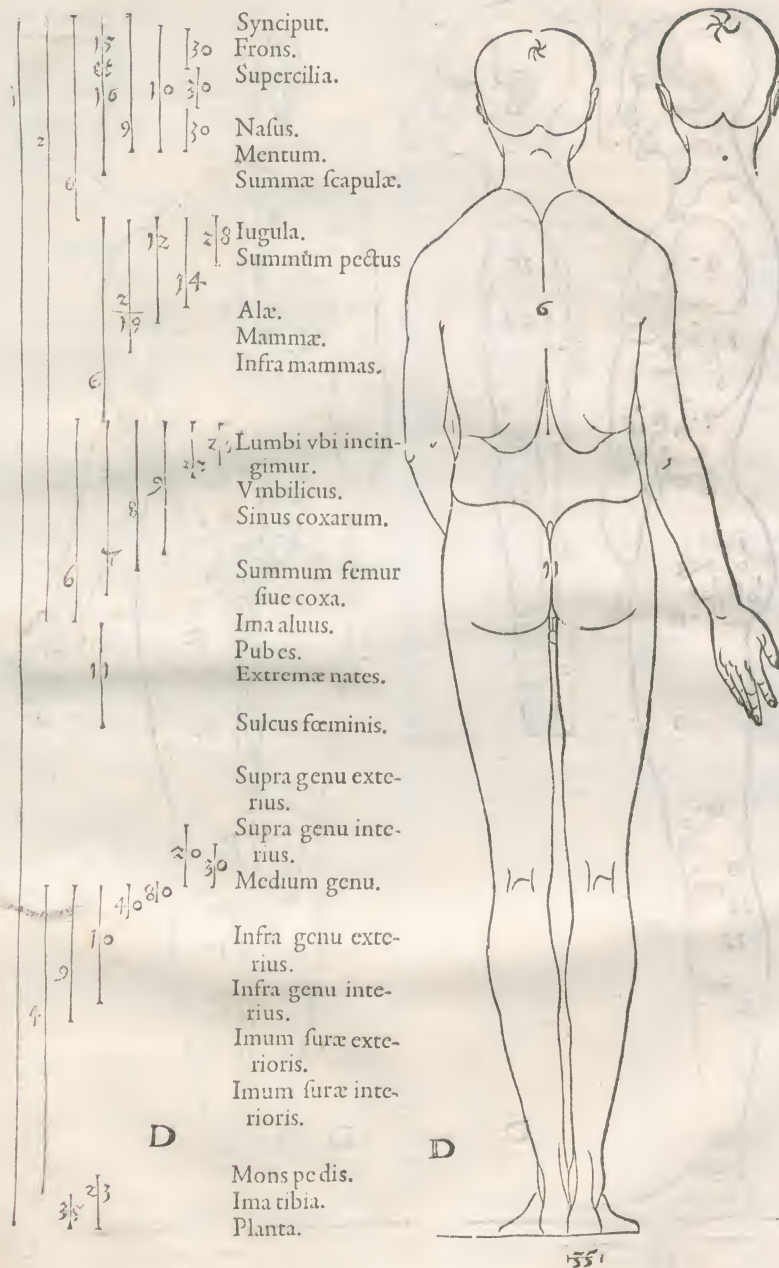 Synciput.
Frons.
Supercilia.
Naſus.
Mentum.
Summæ ſcapulæ.
Iugula.
Summūm pectus
Alæ.
Mammæ.
Infra mammas.
Lumbi vbi incin-
gimur.
Vmbilicus.
Sinus coxarum.
Summum femur
ſiue coxa.
Ima aluus.
Pubes.
Extremæ nates.
Sulcus fœminis.
Supra genu exte-
rius.
Supra genu inte-
rius.
Medium genu.
Infra genu exte-
rius.
Infra genu inte-
rius.
Imum ſuræ exte-
rioris.
Imum ſuræ inte-
rioris.
Mons pedis.
Ima tibia.
Planta.
D
D
1
2
6
15
16
9
10
30
30
30
6
2
19
12
14
28
6
7
8
9
11
20
30
4
9
10
40
80
35
23
6
11